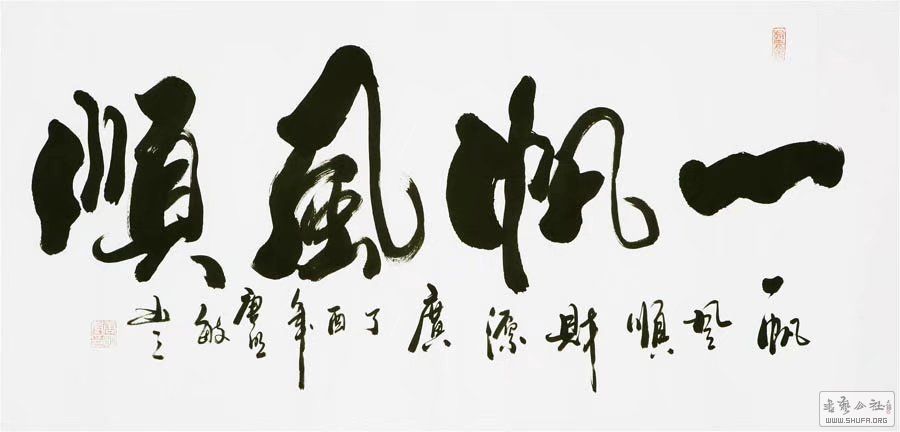 一帆風順
一帆風順財源廣丁酉年唐明敏書
書藝公社
WWW.SHUFA.ORG